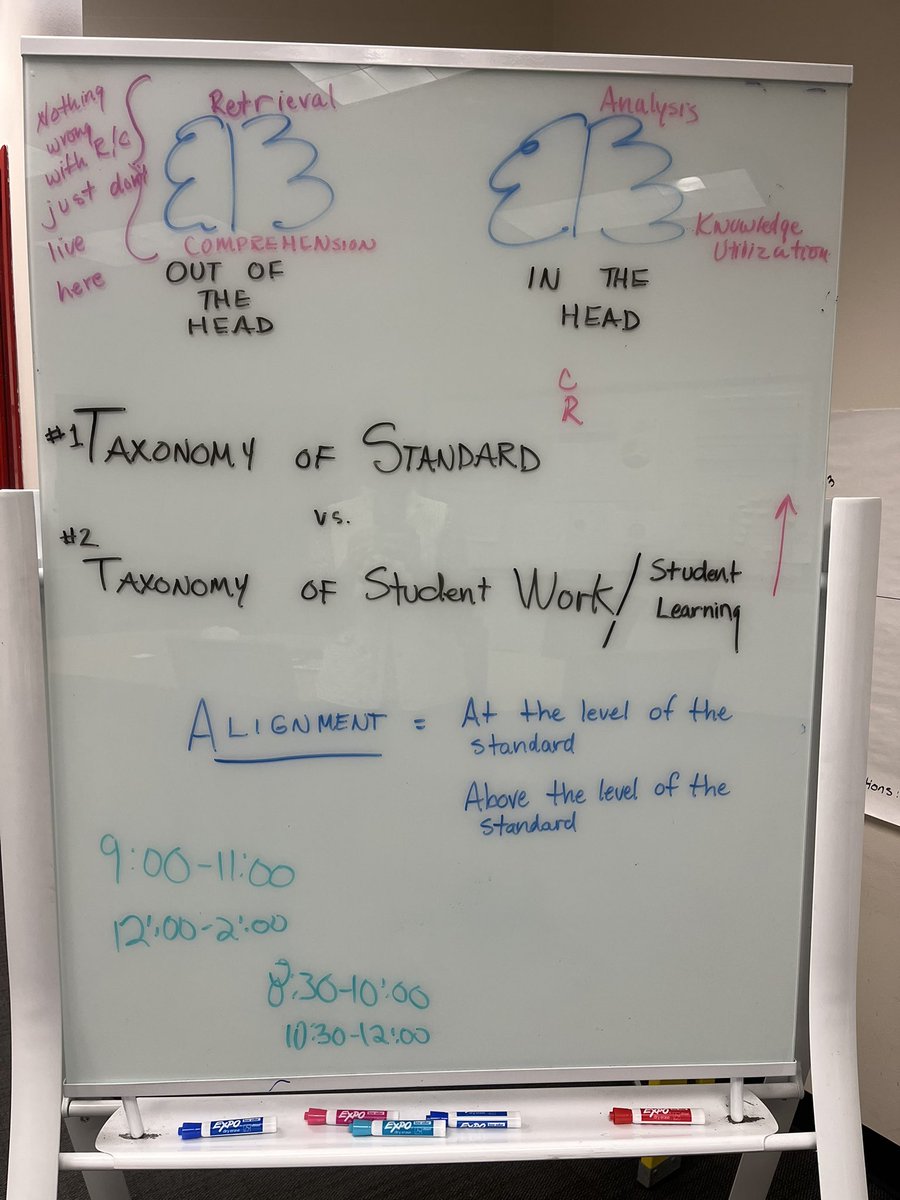 Nothing
wrong
with R/C
just don't
live
here
Retrieval
COMPREHENSION
OUT OF
THE
HEAD
Analysis
Knowledge
Utilization
IN THE
HEAD
C
R
#1 TAXONOMY OF STANDARD
vs.
#2
TAXONOMY OF Student Work/
Student
Learning
ALIGNMENT = At the level of the
standard
Above the level of the
standard
9:00-11:00
12:00-2:00
8:30-10:00
10:30-12:00
3
ions:
EXPO
EXPO
EXPO
EXPO
EXPO